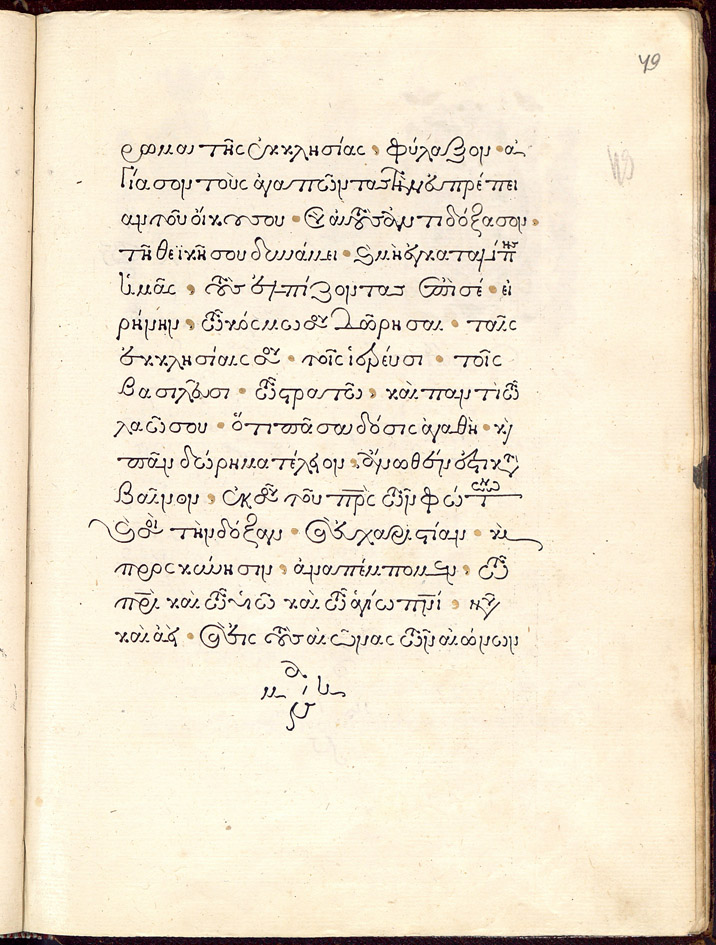 49
48
ρωμα τῆς ἐκκλησίας, φύλαξον· ἁ
γίασον τοὺς ἀγαπῶντας τὴν εὐπρέπει
αν τοῦ οἴκου σου· σὺ αὐτοὺς ἀντιδόξασον,
τῇ θεϊκῇ σου δυνάμει· καὶ μὴ ἐγκαταλίπῃς
ἡμᾶς, τοὺς ἐλπίζοντας ἐπὶ σέ· εἰ
ρήνην, τῷ κόσμῳ σου δώρησαι· ταῖς
ἐκκλησίαις σου· τοῖς ἱερεῦσι· τοῖς
βασιλεῦσι· τῷ στρατῷ, καὶ παντὶ τῷ
λαῷ σου· ὅτι πᾶσα δόσις ἀγαθὴ· καὶ
πᾶν δώρημα τέλειον, ἄνωθέν ἐστι κατα
βαῖνον, ἐκ σοῦ τοῦ πρ̅ς τῶν φώτων
καὶ σοὶ τὴν δόξαν· εὐχαριστίαν· καὶ
προσκύνησιν, ἀναπέμπομεν, τῷ
πρ̅ὶ καὶ τῷ υἱῷ καὶ τῷ ἁγίῳ πν̅ι, νῦν
καὶ ἀεὶ· καὶ εἰς τοὺς αἰῶνας τῶν αἰώνων
ἀμήν